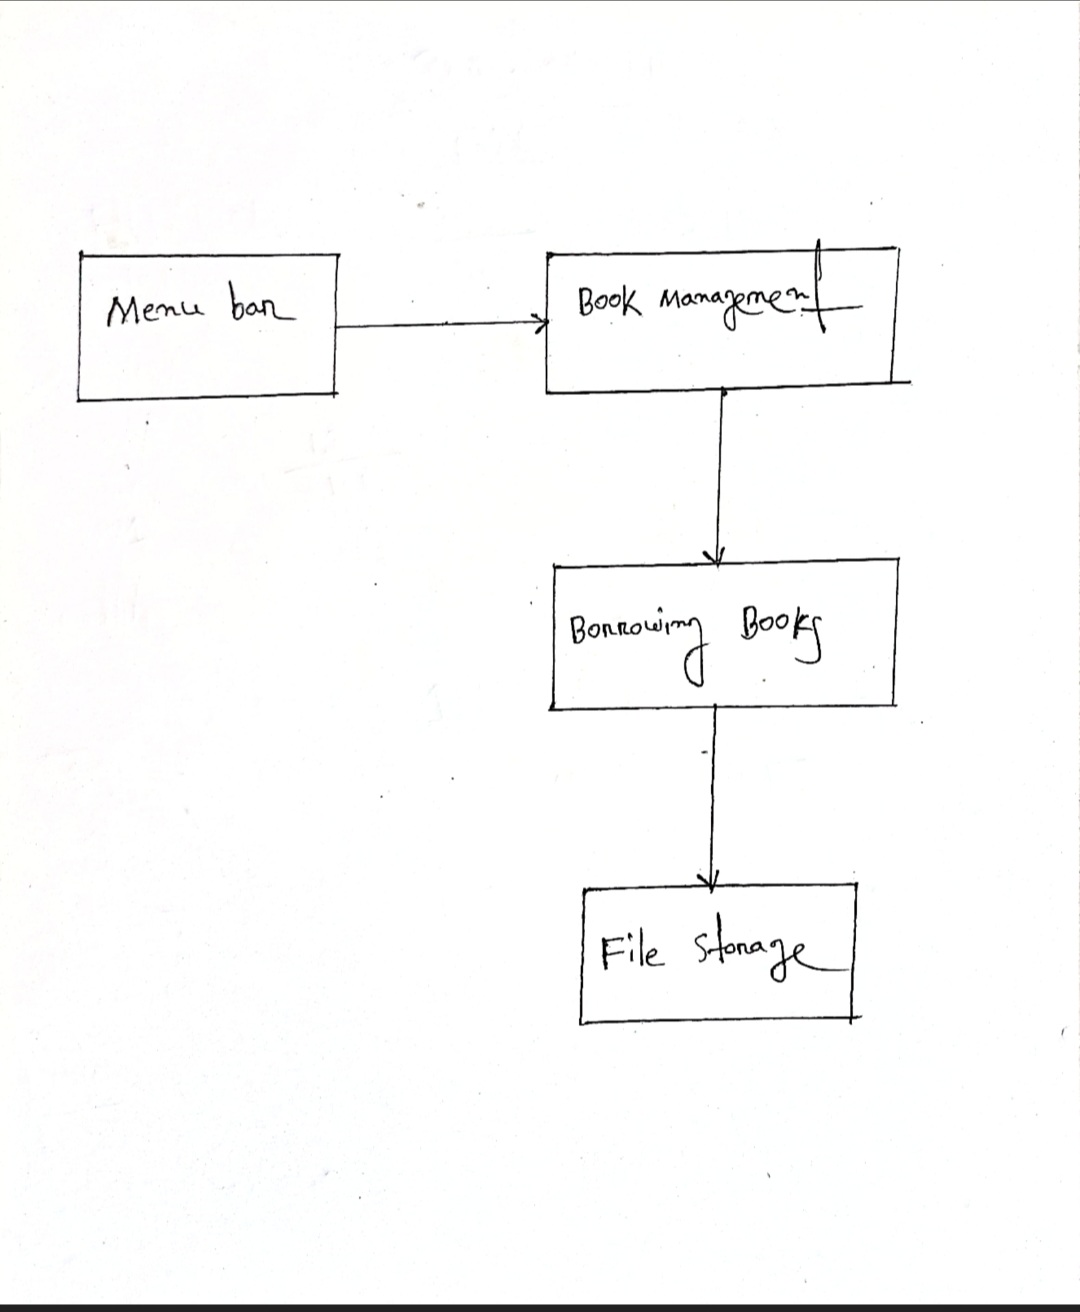 Menu bar
Book Management
Borrowing Books
File Storage